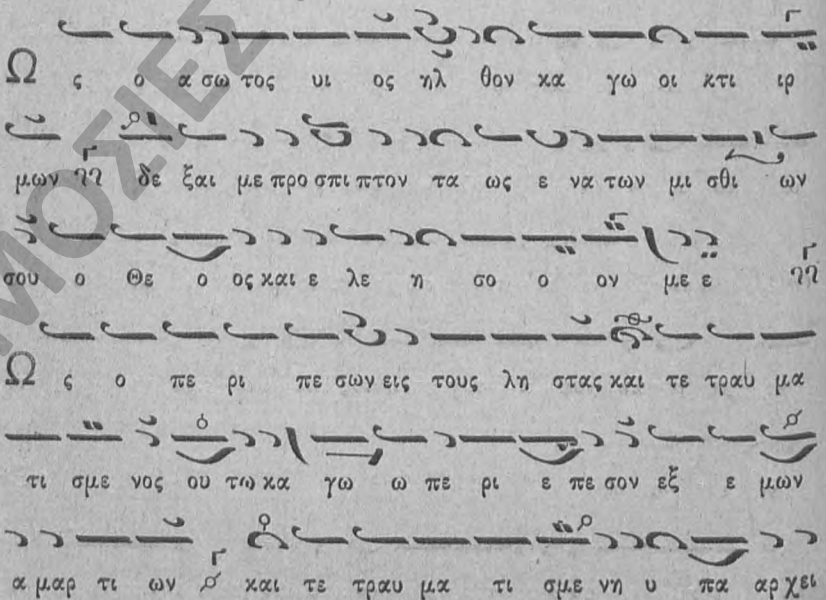 Ω ς ο α σω τος υι ος ηλ θον κα γω οι κτι ιρ
μων δε ξαι με προ σπι πτον τα ως ε να των μι σθι ων
σου ο Θε ο ος και ε λε η σο ο ον με ε
Ω ς ο πε ρι πε σων εις τους λη στας και τε τραυ μα
τι σμε νος ου τω κα γω ω πε ρι ε πε σον εξ ε μων
α μαρ τι ων και τε τραυ μα τι σμε νη υ πα αρ χει